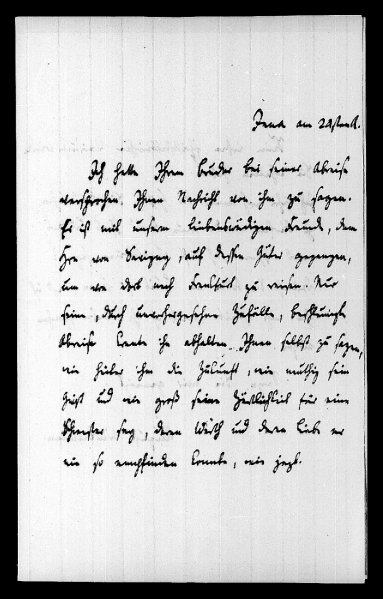 Jena am 24sten
Ich hatte Ihrem Bruder bei seiner Abreise
versprochen Ihnen Nachricht von ihm zu sagen.
Er ist mit unserm liebenswürdigen Freunde, dem
Hrn von auf dessen Güter gegangen,
um von dort nach Frankfurt zu reisen. Nur
seine, durch unvorhergesehne Zufälle, beschleunigte
Abreise konnte ihn abhalten Ihnen selbst zu sagen,
wie heiter ihm die Zukunft, wie muthig sein
Geist und wie groß seine Zärtlichkeit für eine
Schwester sey, deren Werth und deren Liebe er
nie so empfinden konnte, wie jezt.